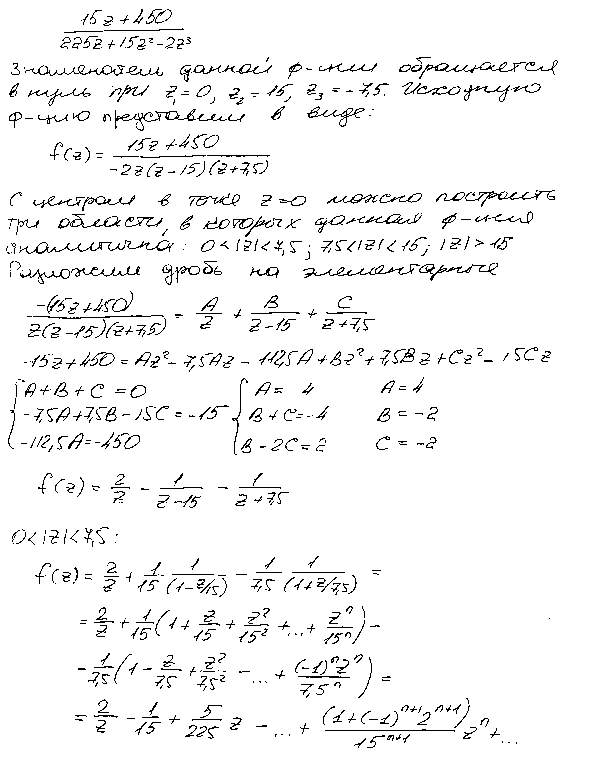 (15z+450)/(225z+15z²-2z³)
Знаменатель данной ф-ции обращается
в нуль при z₁=0, z₂=15, z₃=-7,5. Исходную
ф-цию представим в виде:
f(z) = (15z+450)/(-2z(z-15)(z+7,5))
С центром в точке z=0 можно построить
три области, в которых данная ф-ция
аналитична: 0<|z|<7,5; 7,5<|z|<15; |z|>15
Разложим дробь на элементарные
-(15z+450)/(z(z-15)(z+7,5)) = A/z + B/(z-15) + C/(z+7,5)
-15z+450 = Az²-7,5Az-112,5A+Bz²+7,5Bz+Cz²-15Cz
{A+B+C=0 {A=4 A=4
-7,5A+7,5B-15C=-15 B+C=-4 B=-2
-112,5A=-450 B-2C=2 C=-2
f(z) = 2/z - 1/(z-15) - 1/(z+7,5)
0<|z|<7,5:
f(z) = 2/z + 1/15 · 1/(1-z/15) - 1/7,5 · 1/(1+z/7,5) =
= 2/z + 1/15(1+z/15+z²/15²+...+zⁿ/15ⁿ) -
-1/7,5(1-z/7,5+z²/7,5²-...+(-1)ⁿzⁿ/7,5ⁿ) =
= 2/z - 1/15 + 5/225 z - ...+ (1+(-1)ⁿ⁺¹2ⁿ⁺¹)/15ⁿ⁺¹ zⁿ+...